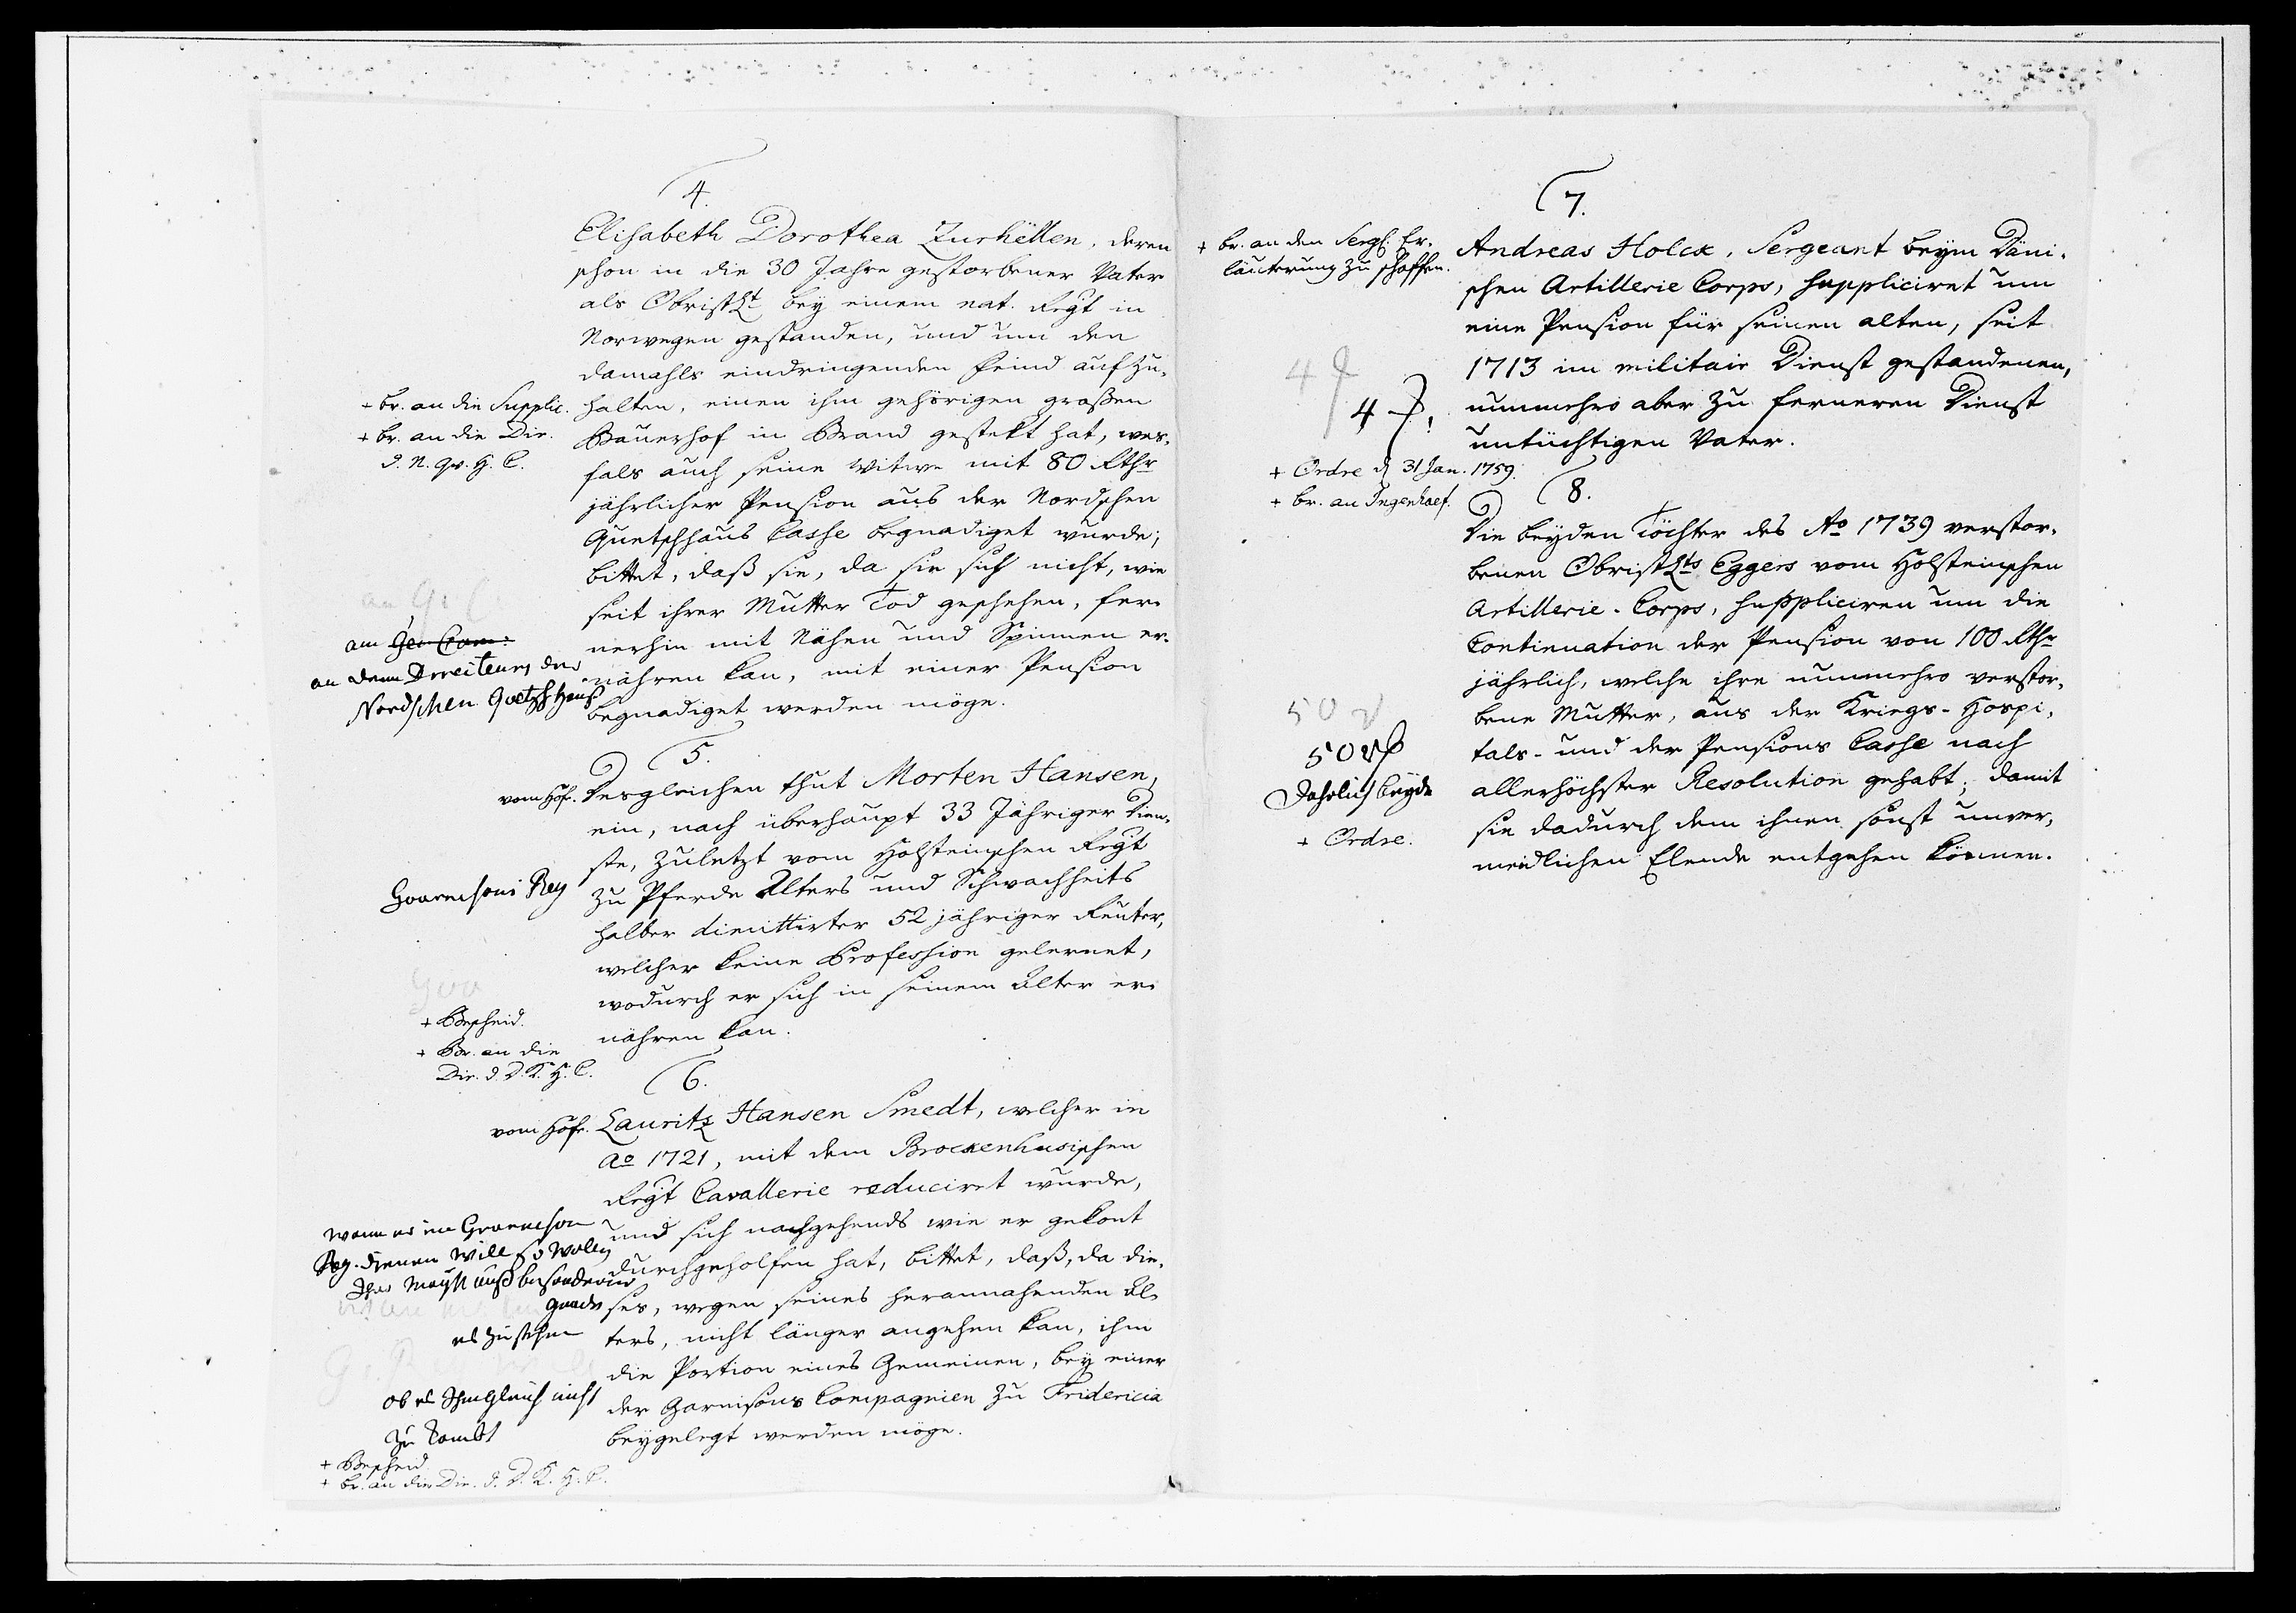 4.
Elisabeth Dorothea Zurhellen, deren
schon in die 30 Jahre gestorbener Vater
als ObristLt bey einem nat. Regt in
Norwegen gestanden, und um den
damahls eindringenden Feind aufzu-
halten, einen ihm gehörigen großen
Bauerhof in Brand gestekt hat, wes-
fals auch seine Witwe mit 80 Rthr
jährlicher Pension aus der Nordschen
Quetschhaus Casse begnadiget wurde;
bittet, daß sie, da sie sich nicht, wie
seit ihrer Mutter Tod geschehen, fer-
nerhin mit Nähen und Spinnen er-
nähren kan, mit einer Pension
begnadiget werden möge.
+ br. an die Supplic.
+ br. an die Dir.
d. N. Qu. H. C.
an Gen Com:
an denn Dreiteurs der
Nordschen Quetsch Hauß
5.
vom Hofe. Desgleichen thut Morten Hansen,
ein, nach überhaupt 33 Jähriger Dien-
ste, zuletzt vom Holsteinschen Regt
zu Pferde Alters und Schwachheits
halber dimittirter 52 jähriger Reuter,
welcher keine Profession gelernet,
wodurch er sich in seinem Alter er-
nähren kan.
Goarnisons Reg
+ Bescheid.
+ Br. an die
Dir. d. D. K. H. C.
6.
vom Hofe. Lauritz Hansen Smedt, welcher in
Ao 1721, mit dem Brockenhusischen
Regt Cavallerie reduciret wurde,
und sich nachgehends wie er gekont
durchgeholfen hat, bittet, daß, da die-
ses, wegen seines herannahenden Al-
ters, nicht länger angehen kan, ihm
die Portion eines Gemeinen, bey einer
der Garnisons Compagnien zu Fridericia
beygelegt werden möge.
wenn er im Groarnison
Reg. dienen will so wollen
Ihro Maytt auß besonderer
gnade
es zustehen
ob es Ihm gleich nicht
zu komt
+ Bescheid
+ br. an die Dir. d. D. K. H. C.
7.
+ br. an den Serg. Er-
läuterung zu schaffen.
Andreas Holck, Sergeant beym Däni-
schen Artillerie Corps, suppliciret um
eine Pension für seinen alten, seit
1713 im militair Dienst gestandenen,
nunmehro aber zu ferneren Dienst
untüchtigen Vater.
4
4
+ Ordre d 31 Jan. 1759.
+ br. an Ingenhaef.
8.
Die beyden Töchter des Ao 1739 verstor-
benen ObristLts Eggers vom Holsteinschen
Artillerie-Corps, suppliciren um die
Continuation der Pension von 100 Rthr
jährlich, welche ihre nunmehro verstor-
bene Mutter, aus der Kriegs-Hospi-
tals- und der Pensions Casse nach
allerhöchster Resolution gehabt; damit
sie dadurch dem ihnen sonst unver-
meidlichen Elende entgehen können.
50
50
Jahrlich beyde
+ Ordre.